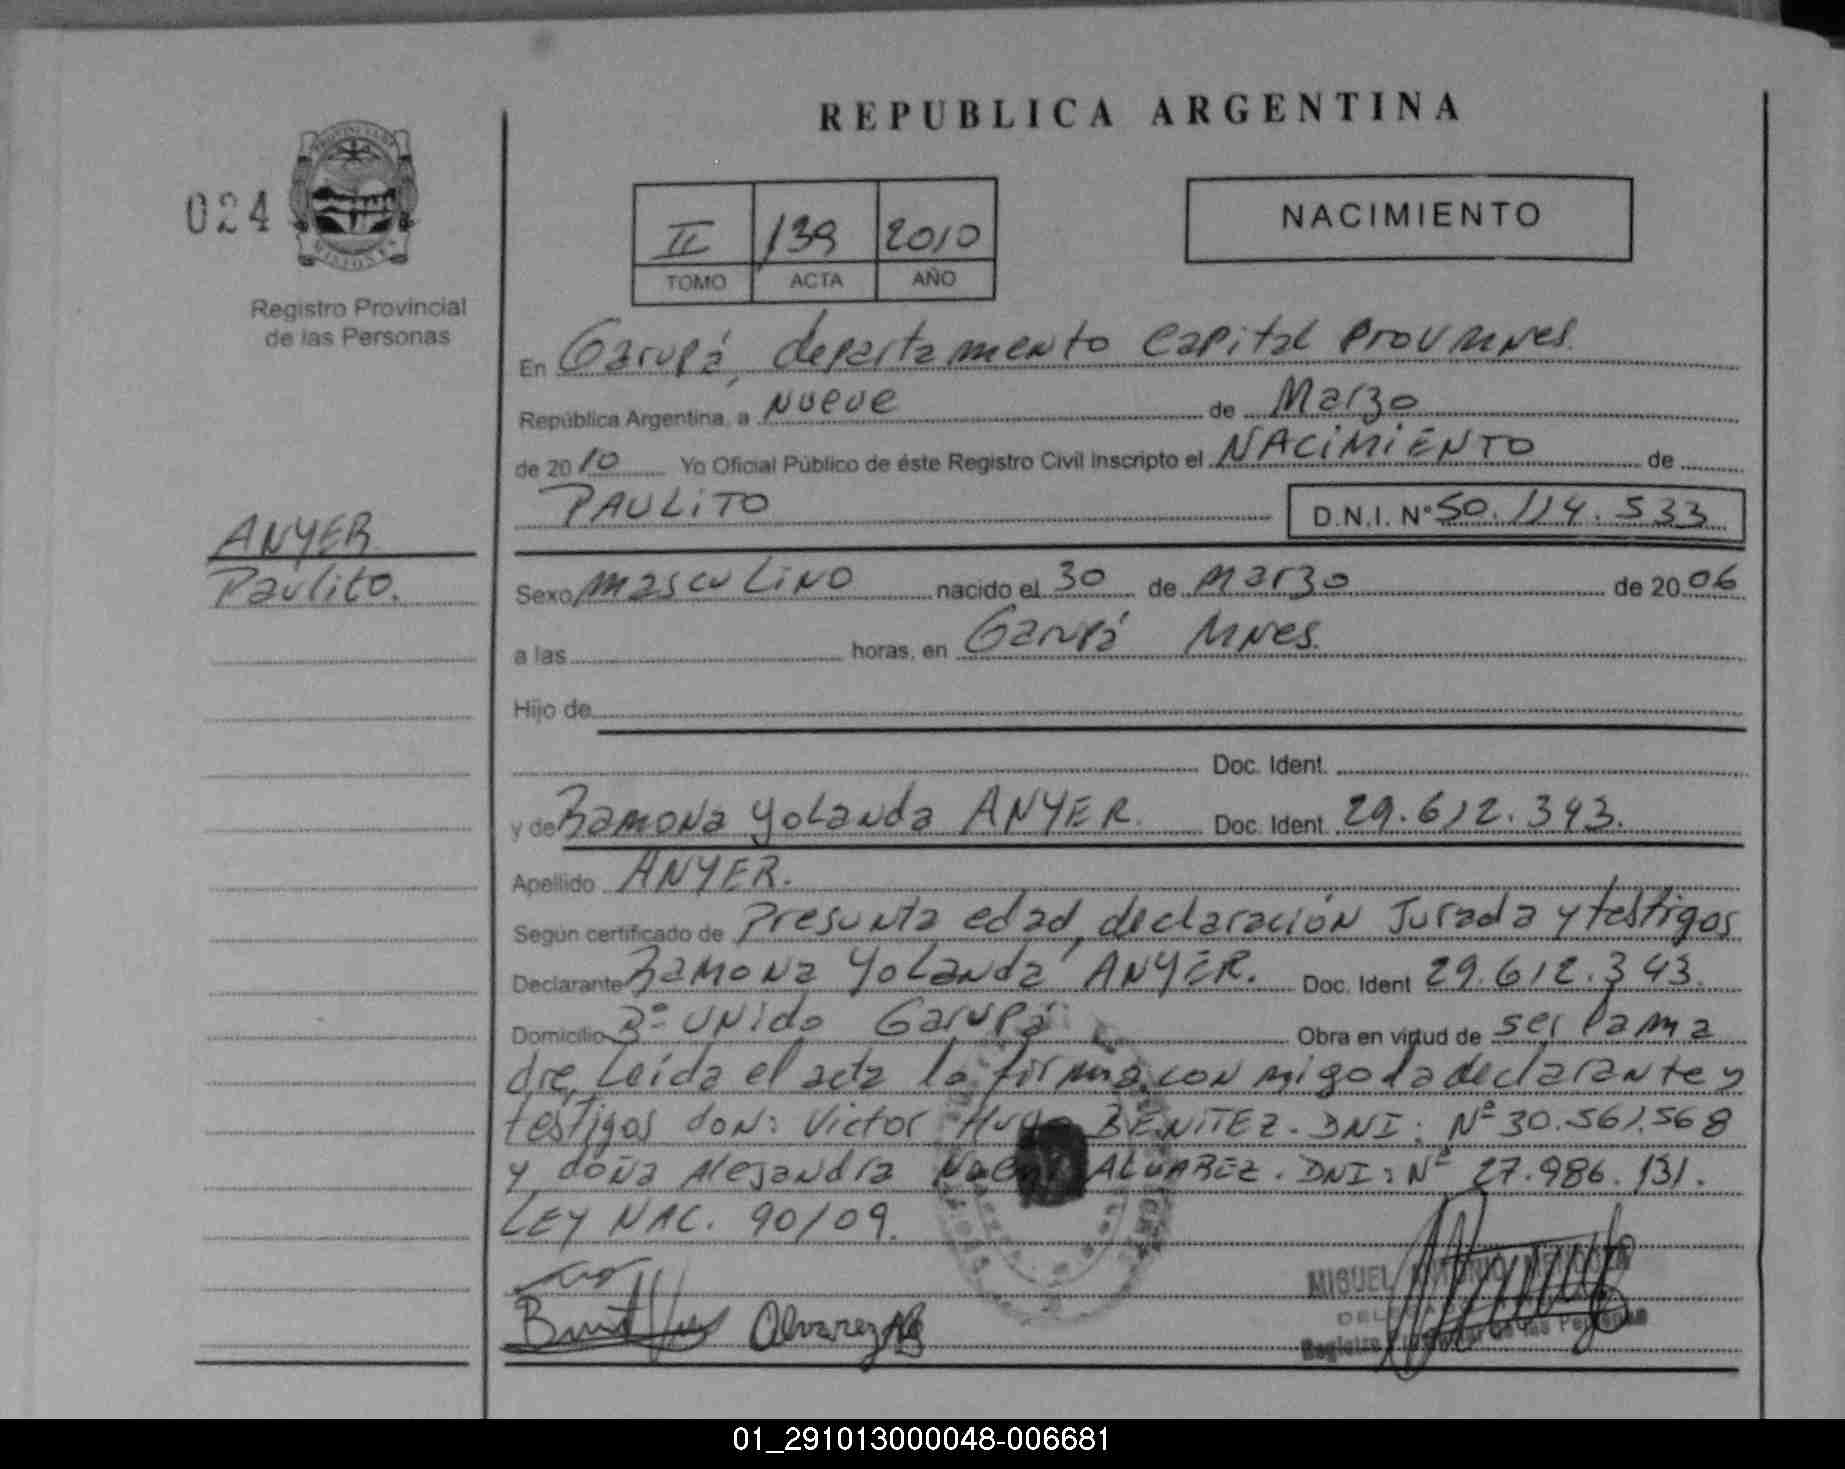 REPUBLICA ARGENTINA
024
MISIONES
Registro Provincial
de las Personas
II 139 2010
TOMO ACTA AÑO
NACIMIENTO
En Garupá, departamento Capital Prov Mnes.
República Argentina, a Nueve de Marzo
de 2010 Yo Oficial Público de éste Registro Civil inscripto el NACIMIENTO de
PAULITO D.N.I. N° 50.114.533
ANYER
Paulito.
Sexo masculino nacido el 30 de Marzo de 2006
a las horas, en Garupá Mnes.
Hijo de
Doc. Ident.
y de Ramona Yolanda ANYER. Doc. Ident. 29.612.343.
Apellido ANYER.
Según certificado de Presunta edad, declaración Jurada y testigos
Declarante Ramona Yolanda ANYER. Doc. Ident 29.612.343.
Domicilio B° Unido Garupá Obra en virtud de ser la ma
dre, Leída el acta la firma con migo la declarante y
testigos don: Victor Hugo BENITEZ. DNI: Nº 30.561.568
y doña Alejandra Noemí ALVAREZ. DNI: Nº 27.986.131.
LEY NAC. 90/09.
Alvarez
MIGUEL ANTONIO
Registro de las Personas
01_291013000048-006681